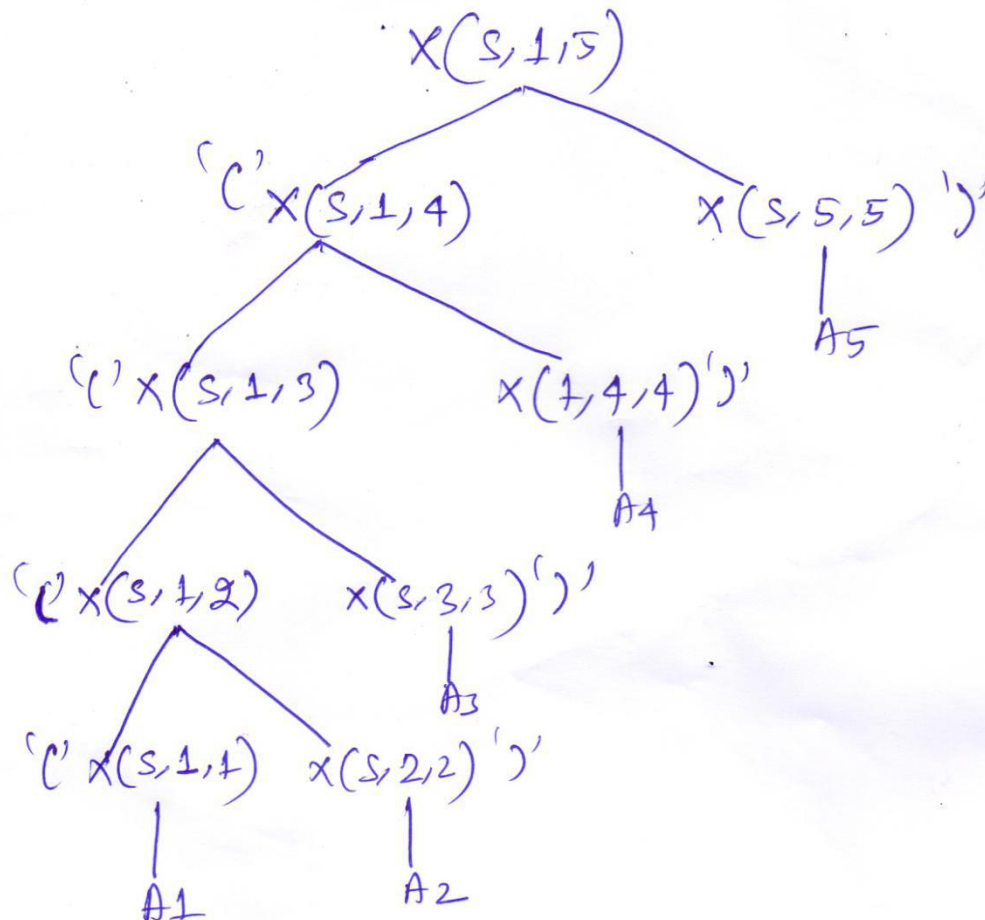 X(S,1,5)
'(' X(S,1,4) X(S,5,5) ')'
A5
'(' X(S,1,3) X(1,4,4) ')'
A4
'(' X(S,1,2) X(S,3,3) ')'
A3
'(' X(S,1,1) X(S,2,2) ')'
A1 A2